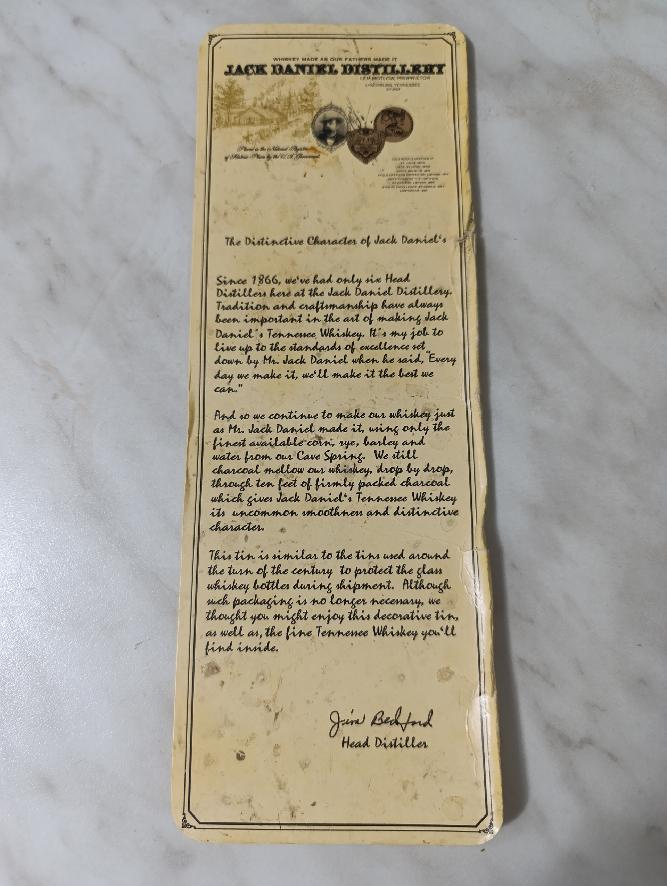 WHISKEY MADE AS OUR FATHERS MADE IT
JACK DANIEL DISTILLERY
LEM MOTLOW, PROPRIETOR
LYNCHBURG, TENNESSEE
Placed in the National Register
of Historic Places by the U.S. Government.
The Distinctive Character of Jack Daniel's
Since 1866, we've had only six Head
Distillers here at the Jack Daniel Distillery.
Tradition and craftsmanship have always
been important in the art of making Jack
Daniel's Tennessee Whiskey. It's my job to
live up to the standards of excellence set
down by Mr. Jack Daniel when he said, "Every
day we make it, we'll make it the best we
can."
And so we continue to make our whiskey just
as Mr. Jack Daniel made it, using only the
finest available corn, rye, barley and
water from our Cave Spring. We still
charcoal mellow our whiskey, drop by drop,
through ten feet of firmly packed charcoal
which gives Jack Daniel's Tennessee Whiskey
its uncommon smoothness and distinctive
character.
This tin is similar to the tins used around
the turn of the century to protect the glass
whiskey bottles during shipment. Although
such packaging is no longer necessary, we
thought you might enjoy this decorative tin,
as well as, the fine Tennessee Whiskey you'll
find inside.
Jim Bedford
Head Distiller